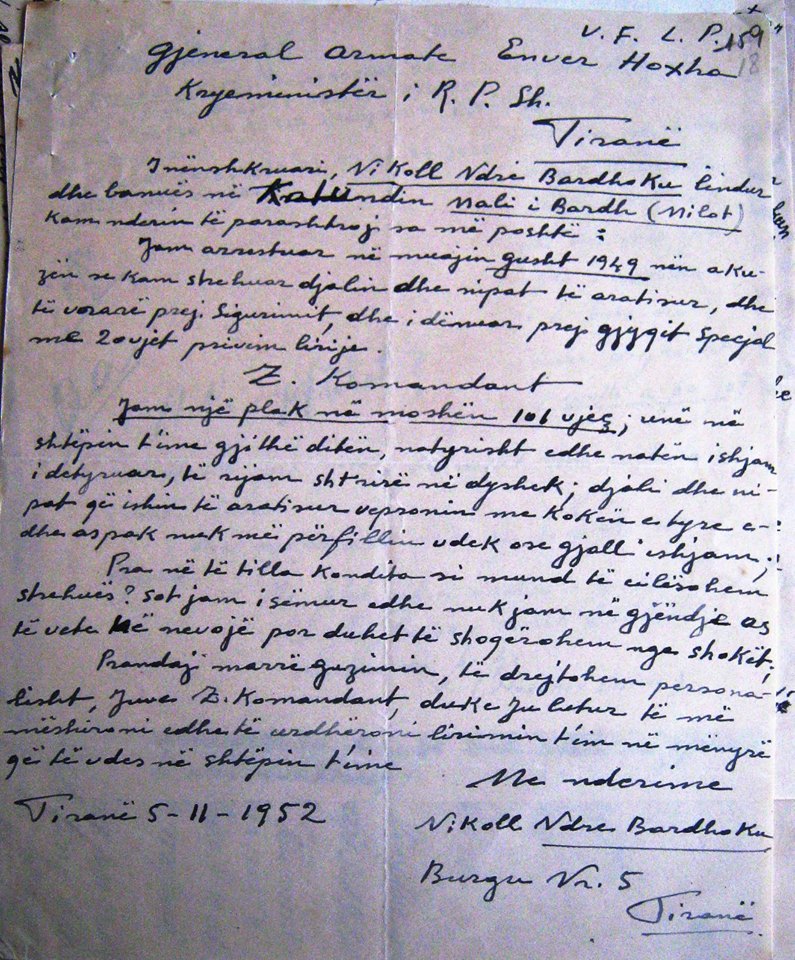 V. F. L. P. 159
18
Gjeneral Armate Enver Hoxha
Kryeministër i R. P. Sh.
Tiranë
I nënshkruari, Nikoll Ndre Bardhoku lindur
dhe banues në Katundin Mali i Bardh (Milot)
kam nderin të parashtroji sa më poshtë:
Jam arrestuar në muajin gusht 1949 nën aku-
zën se kam strehuar djalin dhe nipat të aratisur, dhe
të vrarë prej Sigurimit, dhe i dënuar prej gjyqit Special
me 20 vjet privim lirije.
Z. Komandant
Jam një plak në moshën 101 vjeç; unë në
shtëpin t'ime gjithë ditën, natyrisht edhe natën ishjam
i detyruar, të rijam shtrirë në dyshek; djali dhe ni-
pat që ishin të aratisur vepronin me kokën e tyre e-
dhe aspak nuk më përfillin vdek ose gjall ishjam;
Pra në të tilla kondita si mund të cilësohem
strehues? Sot jam i sëmur edhe nuk jam në gjëndje as
të vete në nevojë por duhet të shoqërohem nga shokët;
Prandaji marrë guzimin, të drejtohem persona-
lisht, Juve Z. Komandant, duke Ju lutur të më
mëshironi edhe të urdhëroni lirimin t'im në mënyrë
që të vdes në shtëpin t'ime
Me nderime
Tiranë 5-11-1952
Nikoll Ndre Bardhoku
Burgu Nr. 5
Tiranë